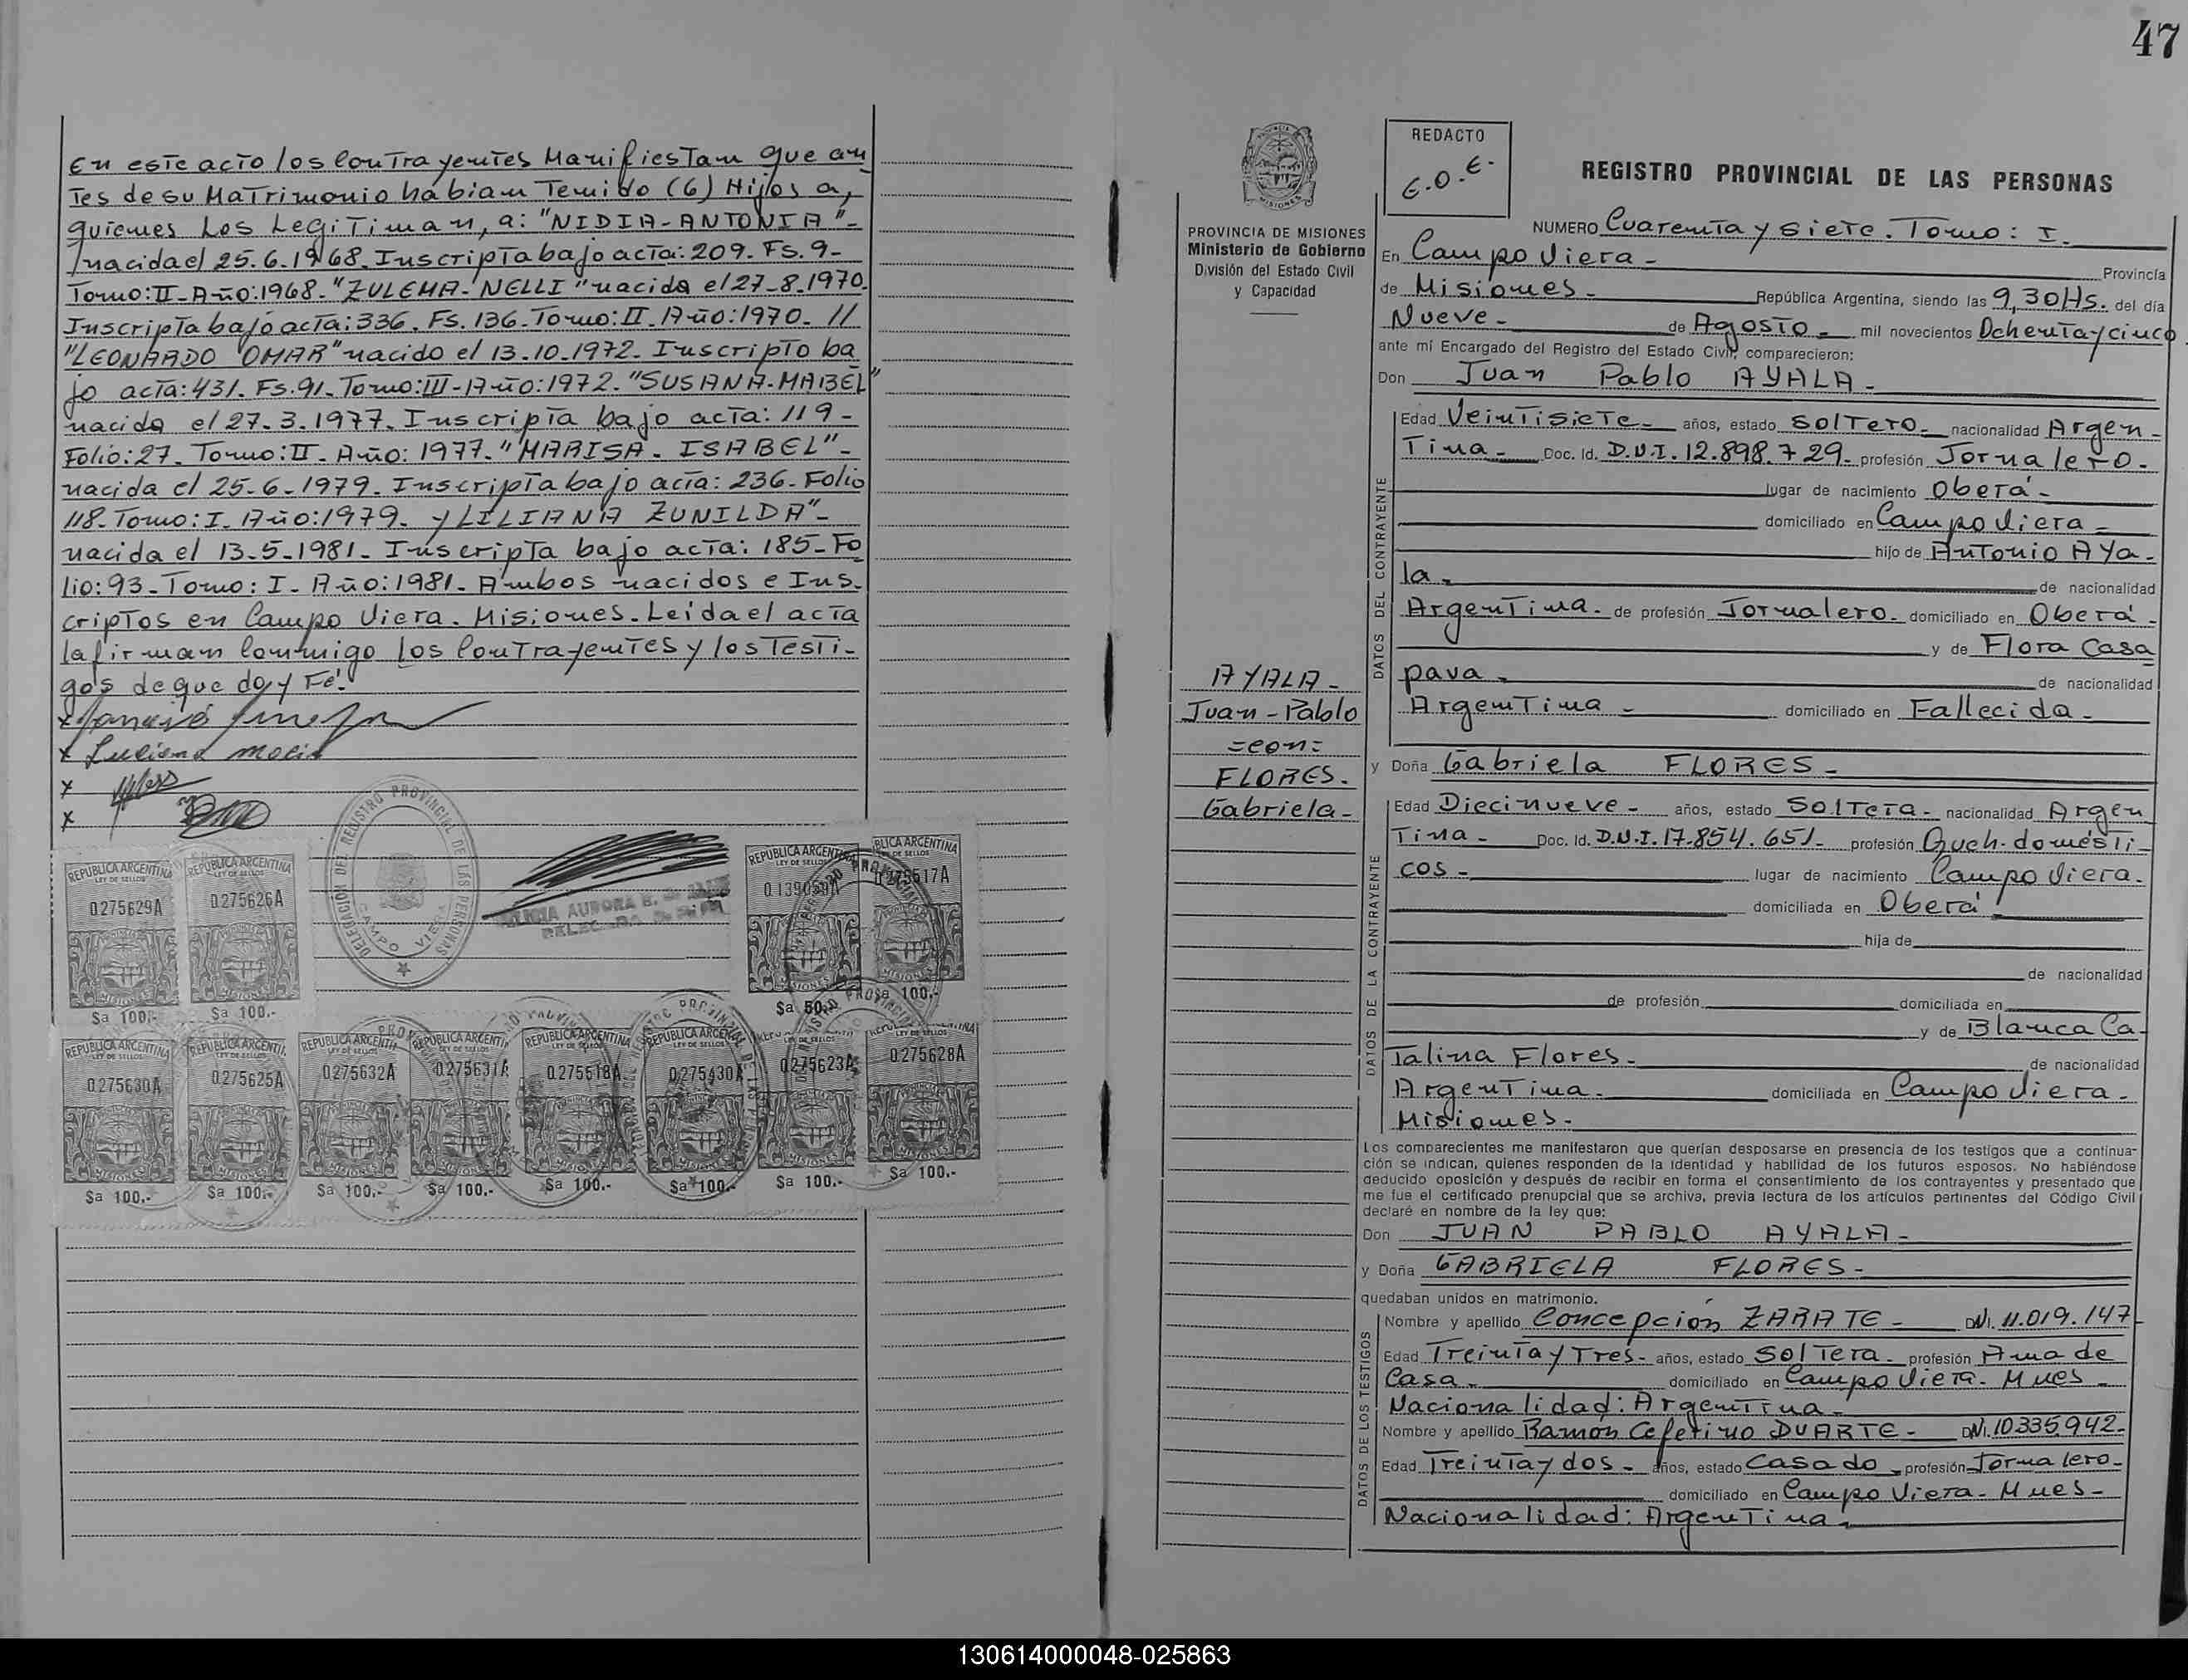 En este acto los Contrayentes Manifiestan que an
Tes de su Matrimonio habian Tenido (6) Hijos a,
quienes Los Legitiman, a: "NIDIA-ANTONIA"-
nacida el 25.6.1968. Inscripta bajo acta: 209. Fs. 9-
Tomo: II- Año: 1968- "ZULEMA- NELLI" nacida el 27-8.1970.
Inscripta bajo acta: 336. Fs. 136. Tomo: II. Año: 1970. //
"LEONARDO OMAR" nacido el 13.10.1972. Inscripto ba
jo acta: 431. Fs. 91. Tomo: III- Año: 1972. "SUSANA-MABEL"
nacida el 27.3.1977. Inscripta bajo acta: 119-
Folio: 27. Tomo: II- Año: 1977. "MARISA- ISABEL"-
nacida el 25-6-1979. Inscripta bajo acta: 236- Folio
118- Tomo: I. Año: 1979. y LILIANA ZUNILDA"-
nacida el 13-5-1981- Inscripta bajo acta: 185- Fo
lio: 93- Tomo: I- Año: 1981- Ambos nacidos e Ins-
criptos en Campo Viera. Misiones- Leida el acta
la firman Conmigo los Contrayentes y los Testi-
gos de que doy Fé.
x
x Luciana
x
x
DELEGACION DEL REGISTRO PROVINCIAL DE LAS PERSONAS
CAMPO VIERA
ALICIA AURORA B.
REPUBLICA ARGENTINA
LEY DE SELLOS
0275629A
MISIONES
$a 100.-
REPUBLICA ARGENTINA
LEY DE SELLOS
0275626A
MISIONES
$a 100.-
REPUBLICA ARGENTINA
$a 50.-
REPUBLICA ARGENTINA
LEY DE SELLOS
$a 100.-
REPUBLICA ARGENTINA
LEY DE SELLOS
0275630A
MISIONES
$a 100.-
REPUBLICA ARGENTINA
LEY DE SELLOS
0275625A
MISIONES
$a 100.-
REPUBLICA ARGENTINA
LEY DE SELLOS
0275632A
MISIONES
$a 100.-
REPUBLICA ARGENTINA
LEY DE SELLOS
0275631A
MISIONES
$a 100.-
REPUBLICA ARGENTINA
LEY DE SELLOS
0275518A
MISIONES
$a 100.-
REPUBLICA ARGENTINA
LEY DE SELLOS
MISIONES
$a 100.-
LEY DE SELLOS
0275623A
$a 100.-
LEY DE SELLOS
0275628A
MISIONES
$a 100.-
47
PROVINCIA DE MISIONES
Ministerio de Gobierno
División del Estado Civil
y Capacidad
REDACTO
E.O.E.
REGISTRO PROVINCIAL DE LAS PERSONAS
NUMERO Cuarenta y siete. Tomo: I.
En Campo Viera- Provincia
de Misiones- República Argentina, siendo las 9,30Hs. del día
Nueve- de Agosto- mil novecientos Ochenta y cinco
ante mi Encargado del Registro del Estado Civil, comparecieron:
Don Juan Pablo AYALA-
DATOS DEL CONTRAYENTE
Edad Veintisiete- años, estado Soltero- nacionalidad Argen-
Tina- Doc. Id. D.N.I. 12.898.729- profesión Jornalero-
lugar de nacimiento Oberá-
domiciliado en Campo Viera-
hijo de Antonio Aya-
la- de nacionalidad
Argentina- de profesión Jornalero- domiciliado en Oberá-
y de Flora Casa
pava- de nacionalidad
Argentina- domiciliado en Fallecida-
AYALA-
Juan-Pablo
=con=
FLORES-
Gabriela-
y Doña Gabriela FLORES-
DATOS DE LA CONTRAYENTE
Edad Diecinueve- años, estado Soltera- nacionalidad Argen
Tina- Doc. Id. D.N.I. 17.854.651- profesión Queh. domésti-
cos- lugar de nacimiento Campo Viera-
domiciliada en Oberá
hija de
de nacionalidad
de profesión domiciliada en
y de Blanca Ca-
Talina Flores- de nacionalidad
Argentina- domiciliada en Campo Viera-
Misiones-
Los comparecientes me manifestaron que querían desposarse en presencia de los testigos que a continua-
ción se indican, quienes responden de la identidad y habilidad de los futuros esposos. No habiéndose
deducido oposición y después de recibir en forma el consentimiento de los contrayentes y presentado que
me fue el certificado prenupcial que se archiva, previa lectura de los artículos pertinentes del Código Civil
declaré en nombre de la ley que:
Don JUAN PABLO AYALA-
y Doña GABRIELA FLORES-
quedaban unidos en matrimonio.
DATOS DE LOS TESTIGOS
Nombre y apellido Concepción ZARATE- DNI. 11.019.147
Edad Treinta y Tres- años, estado Soltera- profesión Ama de
Casa- domiciliado en Campo Viera- Mnes-
Nacionalidad: Argentina-
Nombre y apellido Ramón Ceferino DUARTE- DNI. 10.335.942-
Edad Treinta y dos- años, estado Casado- profesión Jornalero-
domiciliado en Campo Viera- Mnes-
Nacionalidad: Argentina-
130614000048-025863